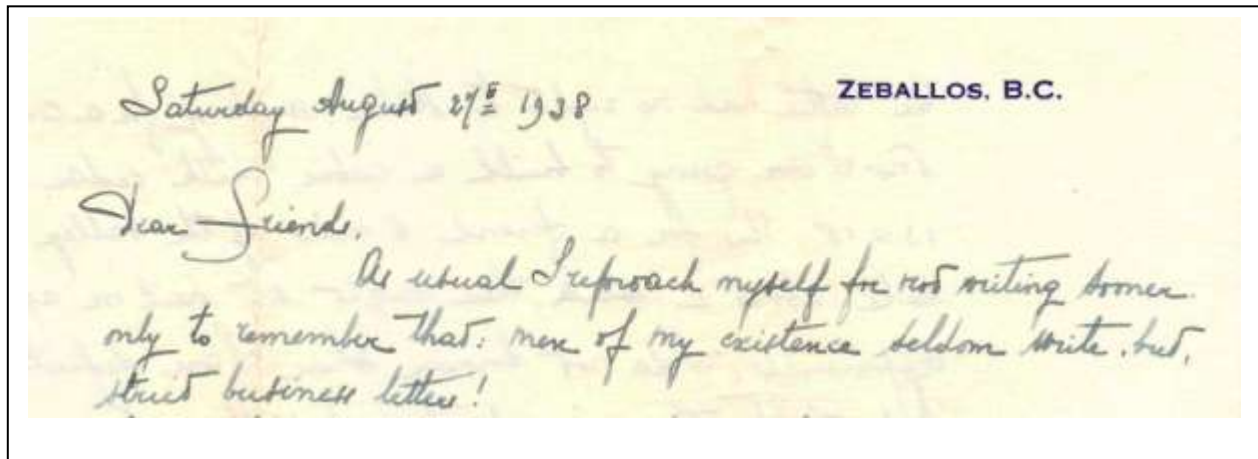 ZEBALLOS, B.C.
Saturday August 27th 1938
Dear Friends.
As usual I reproach myself for not writing sooner.
only to remember that: men of my existence seldom write. but,
strict business letters!